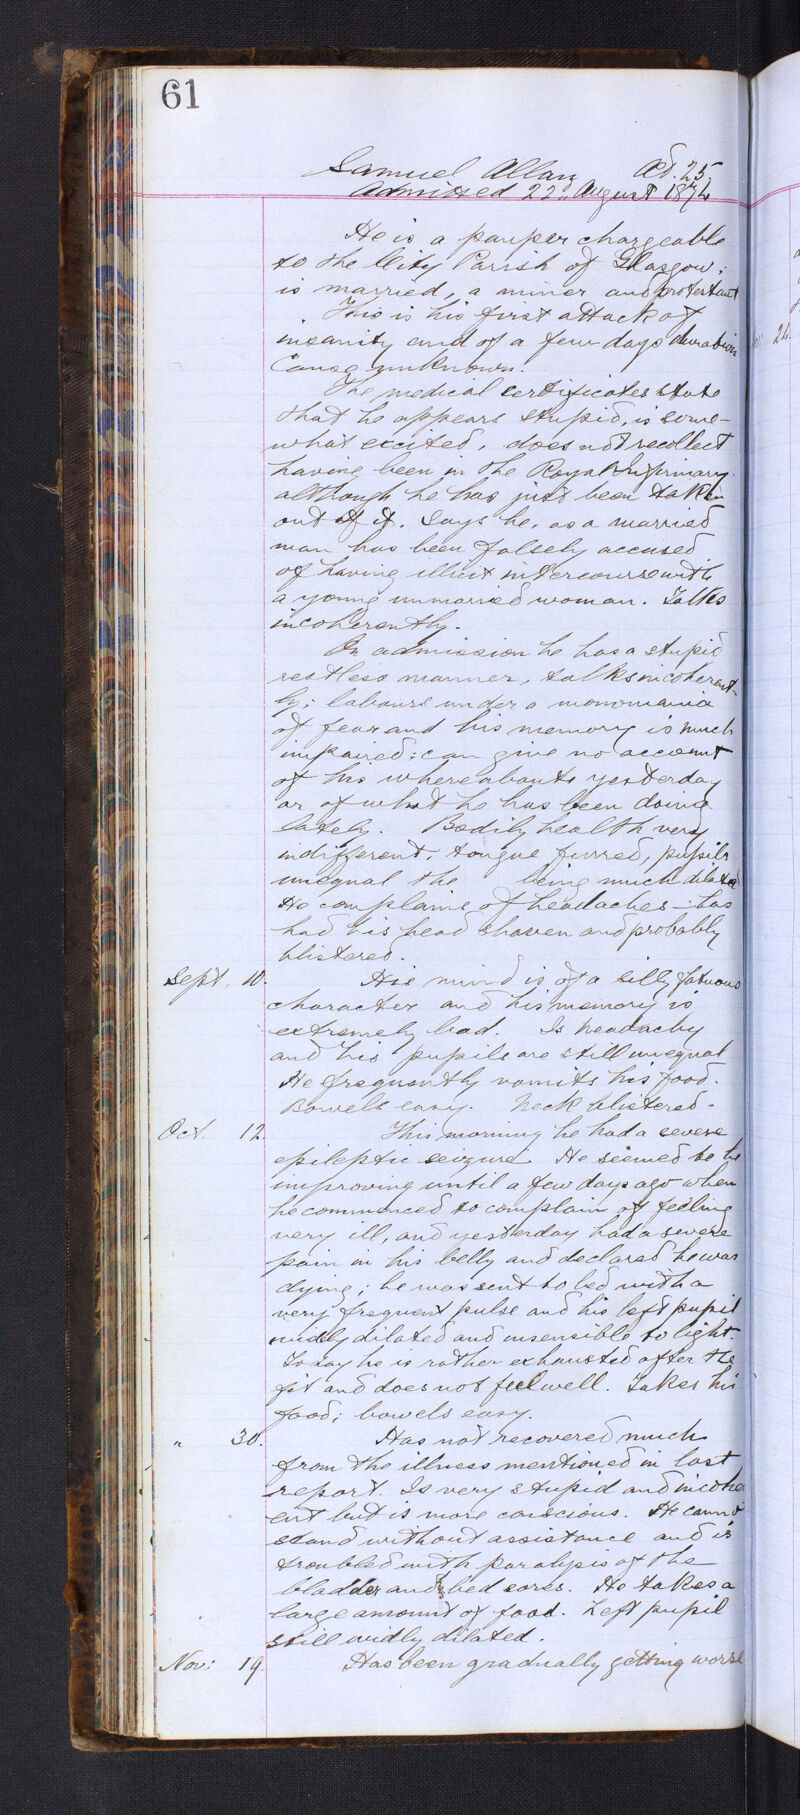 61
Samuel Allan Æd. 25.
Admitted 22nd August 1874
He is a pauper chargeable
to the City Parish of Glasgow;
is married, a miner and protestant
This is his first attack of
insanity and of a few days duration
Cause unknown.
The medical certificates state
that he appears stupid, is some-
what excited, does not recollect
having been in the Royal Infirmary
although he has just been taken
out of it. Says he, as a married
man has been falsely accused
of having illicit intercourse with
a young unmarried woman. Talks
incoherently.
On admission he has a stupid
restless manner, talks incoherent-
ly; labours under a monomania
of fear and his memory is much
impaired: can give no account
of his whereabouts yesterday
or of what he has been doing
lately. Bodily health very
indifferent, tongue furred, pupils
unequal the being much dilated
He complains of headaches - has
had his head shaven and probably
blistered.
Sept. 10. His mind is of a silly fatuous
character and his memory is
extremely bad. Is headachy
and his pupils are still unequal
He frequently vomits his food.
Bowels easy. Neck blistered.
Oct. 12. This morning he had a severe
epileptic seizure. He seemed to be
improving until a few days ago when
he commenced to complain of feeling
very ill, and yesterday had a severe
pain in his belly and declared he was
dying; he was sent to bed with a
very frequent pulse and his left pupil
widly dilated and insensible to light.
Today he is rather exhausted after the
fit and does not feel well. Takes his
food; bowels easy.
" 30. Has not recovered much
from the illness mentioned in last
report. Is very stupid and incoher
ent but is more conscious. He cannot
stand without assistance and is
troubled with paralysis of the
bladder and bed sores. He takes a
large amount of food. Left pupil
still widly dilated.
Nov: 19. Has been gradually getting worse